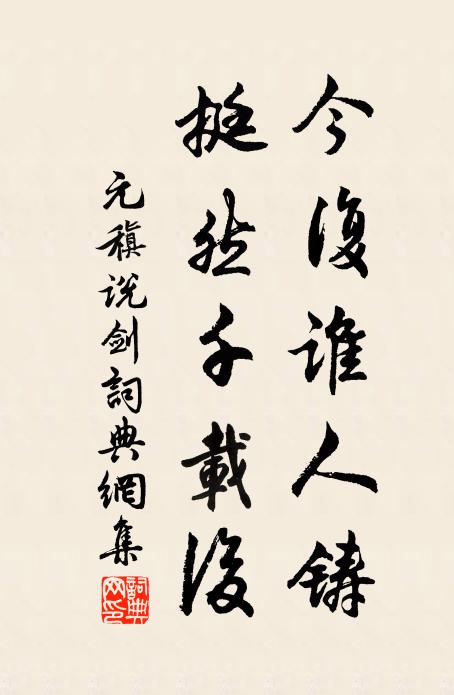 今復誰人鑄
挺然千載後
元稹說劍詞典網集
詞典网印